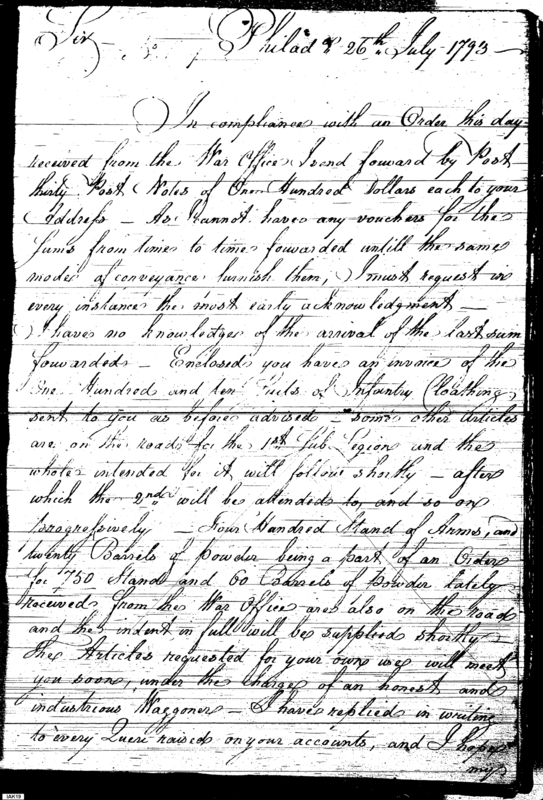 Sir
Philad.a 26th July 1793
In compliance with an Order this day
received from the War Office I send foward by Post
thirty Post Notes of One Hundred Dollars each to your
Address — As I cannot have any vouchers for the
sums from time to time fowarded untill the same
modes of conveyance furnish them, I must request in
every instance the most early acknowledgment —
I have no knowledge of the arrival of the last sum
fowarded — Enclosed you have an invoice of the
One Hundred and ten Suits of Infantry Cloathing
sent to you as before advised — some other Articles
are on the road for the 1st Sub Legion and the
whole intended for it will follow shortly — after
which the 2nd will be attended to, and so on
progressively — Four Hundred Stand of Arms, and
twenty Barrels of powder being a part of an Order
for 750 Stand and 60 Barrels of Powder lately
received from the War Office are also on the road
and the indent in full will be supplied shortly
The Articles requested for your own use will meet
you soon, under the charge of an honest and
industrious Waggoner — I have replied in writing
to every Queri raised on your accounts, and I hope
my
IAK19